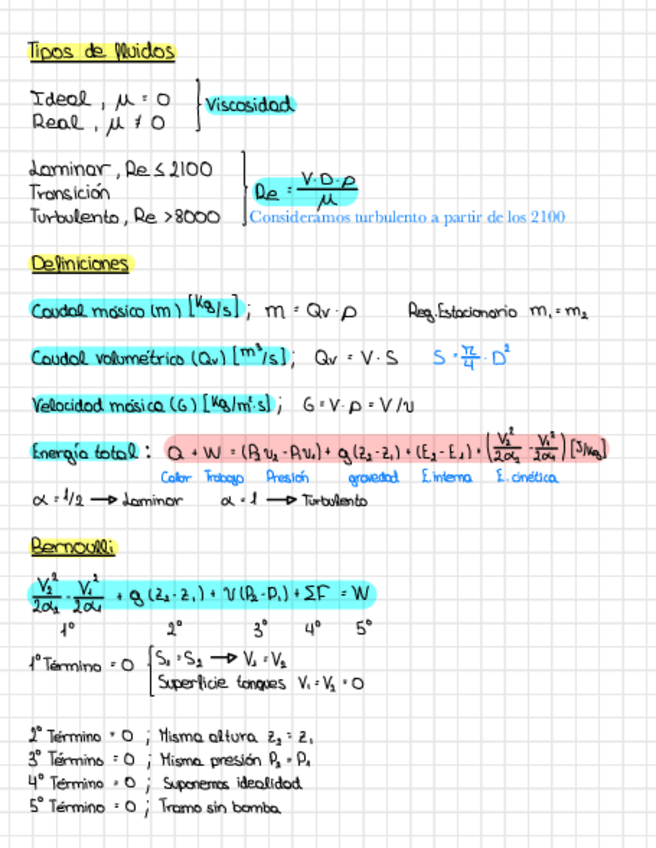 Tipos de fluidos
Ideal, μ = 0
Real, μ ≠ 0
Viscosidad
Laminar, Re ≤ 2100
Transición
Turbulento, Re > 8000
Re = V·D·ρ/μ
Consideramos turbulento a partir de los 2100
Definiciones
Caudal másico (m) [Kg/s]; m = Qv·ρ Reg. Estacionario m₁ = m₂
Caudal volumétrico (Qv) [m³/s]; Qv = V·S S = π/4·D²
Velocidad másica (G) [Kg/m²·s]; G = V·ρ = V/υ
Energía total: Q + W = (P₂υ₂ - P₁υ₁) + g(z₂ - z₁) + (E₂ - E₁) + (V₂²/2α₂ - V₁²/2α₁) [J/Kg]
Calor Trabajo Presión gravedad E. interna E. cinética
α = 1/2 → Laminar α = 1 → Turbulento
Bernoulli
V₂²/2α₂ - V₁²/2α₁ + g(z₂ - z₁) + υ(P₂ - P₁) + ΣF = W
1º 2º 3º 4º 5º
1º Término = 0
S₁ = S₂ → V₁ = V₂
Superficie tanques V₁ = V₂ = 0
2º Término = 0; Misma altura z₂ = z₁
3º Término = 0; Misma presión P₂ = P₁
4º Término = 0; Suponemos idealidad
5º Término = 0; Tramo sin bomba